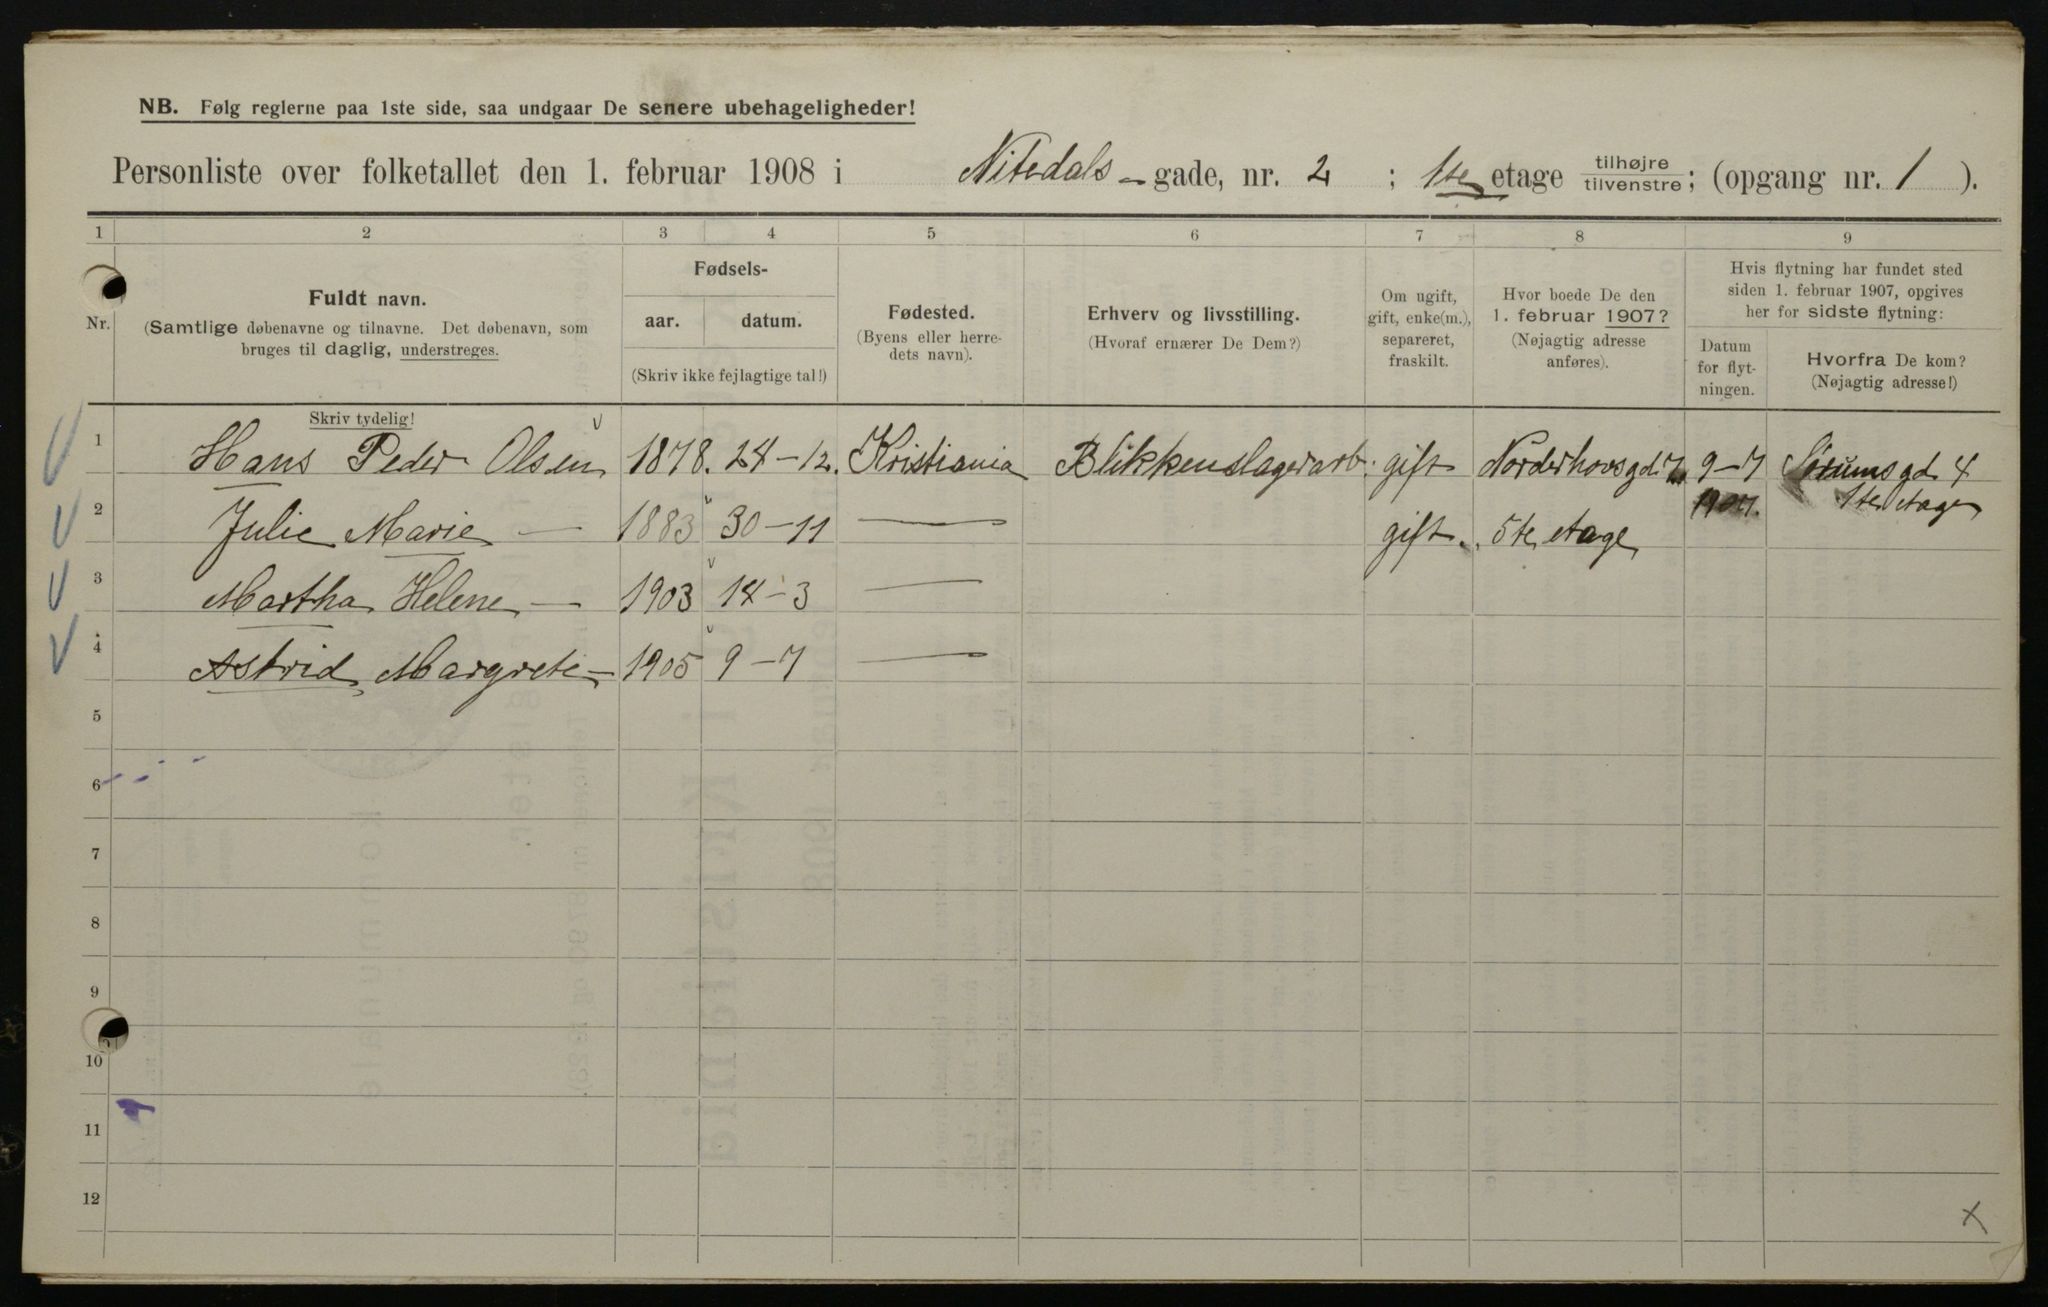 NB. Følg reglerne paa 1ste side, saa undgaar De senere ubehageligheder!
Personliste over folketallet den 1. februar 1908 i Nitedals - gade, nr. 2 ; 1ste etage tilhøjre / tilvenstre ; (opgang nr. 1 ).
1 2 3 4 5 6 7 8 9
Nr.
Fuldt navn.
(Samtlige døbenavne og tilnavne. Det døbenavn, som
bruges til daglig, understreges.
Skriv tydelig!
Fødsels-
aar. datum.
(Skriv ikke fejlagtige tal!)
Fødested.
(Byens eller herre-
dets navn).
Erhverv og livsstilling.
(Hvoraf ernærer De Dem?)
Om ugift,
gift, enke(m.),
separeret,
fraskilt.
Hvor boede De den
1. februar 1907?
(Nøjagtig adresse
anføres).
Hvis flytning har fundet sted
siden 1. februar 1907, opgives
her for sidste flytning:
Datum
for flyt-
ningen.
Hvorfra De kom?
(Nøjagtig adresse!)
1 Hans Peder Olsen 1878. 24-12. Kristiania Blikkenslagerarb. gift Norderhovsgd. 7. 9-7 Sørumsgd 4
1907. 1ste etage
2 Julie Marie — 1883 30-11 — gift. 5te etage
3 Martha Helene — 1903 14-3 —
4 Astrid Margrete — 1905 9-7 —
5
6
7
8
9
10
11
12
x